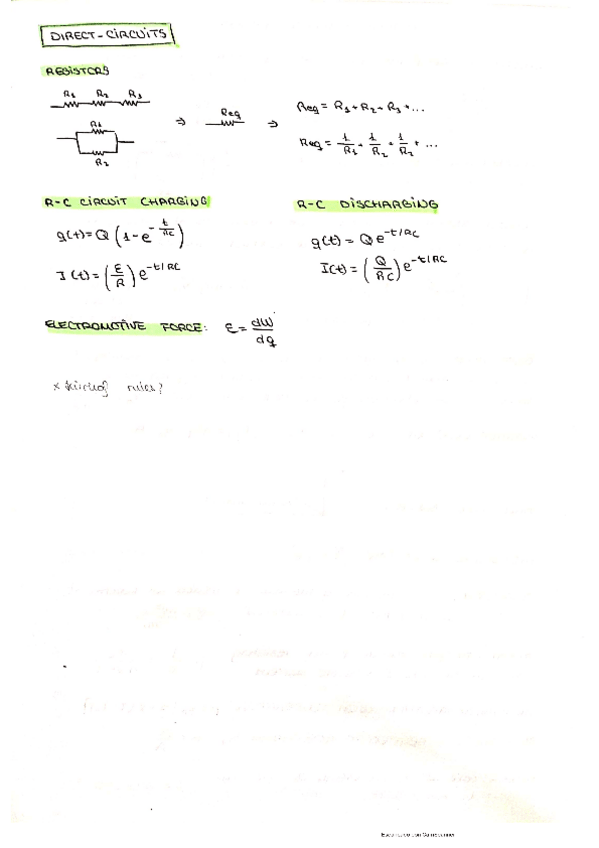 DIRECT-CIRCUITS
RESISTORS
R1 R2 R3
R1
R2
⇒ Req ⇒
Req = R1 + R2 + R3 + ...
Req = 1/R1 + 1/R2 + 1/R2 + ...
R-C CIRCUIT CHARGING
q(t) = Q (1 - e^-t/RC)
I(t) = (E/R) e^-t/RC
R-C DISCHARGING
q(t) = Q e^-t/RC
I(t) = (Q/RC) e^-t/RC
ELECTROMOTIVE FORCE: ε = dW/dq
rules?
Escaneado con CamScanner